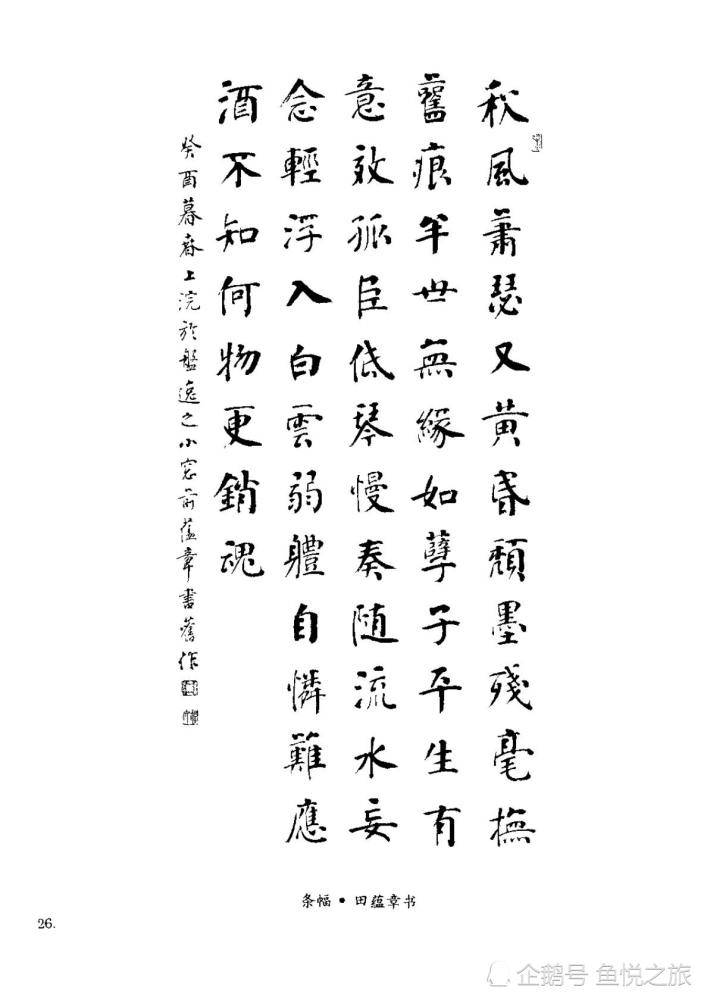 秋風蕭瑟又黄昏頽墨殘毫撫
舊痕半世無緣如孽子平生有
意效孤臣低琴慢奏随流水妄
念輕浮入白雲弱體自憐難應
酒不知何物更銷魂
癸酉暮春上浣於盤逸之小窓前蕴章書舊作
条幅•田蕴章书
26.
企鹅号 鱼悦之旅